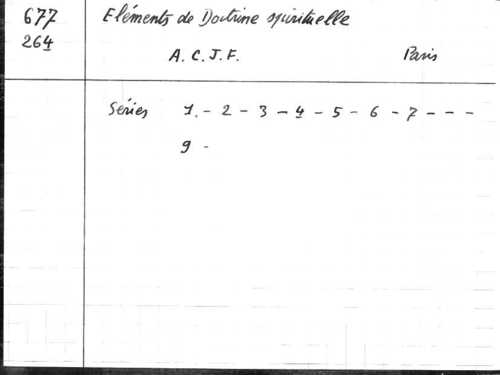 677
264
Eléments de Doctrine spirituelle
A.C.J.F. Paris
Séries 1. - 2 - 3 - 4 - 5 - 6 - 7 - - -
9 -